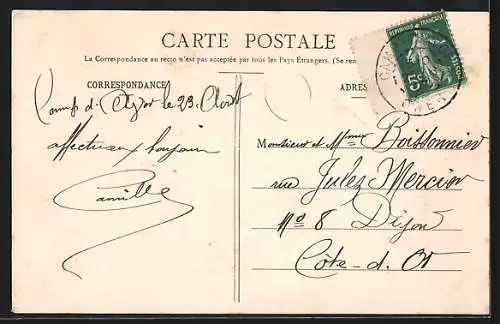 CARTE POSTALE
La Correspondance au recto n'est pas acceptée par tous les Pays Étrangers. (Se ren
CORRESPONDANCE
ADRES
REPUBLIQUE FRANÇAISE
5c
POSTES
Camp d'Avor le 23 Août
affectueux
Camille
Monsieur et Mme Boissonnier
rue Jules Mercier
No 8 Dijon
Côte-d'Or